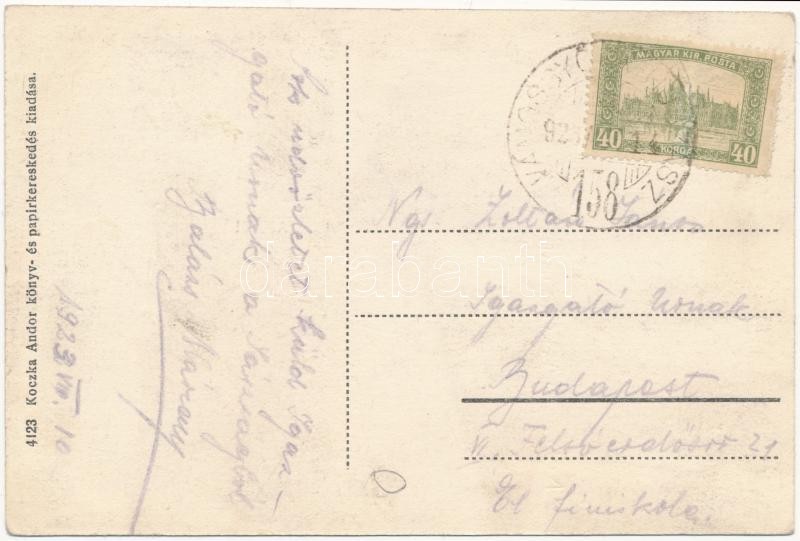 4123 Koczka Andor könyv- és papirkereskedés kiadása.
Sok üdvözletet küld Igaz-
gató Urnak a Társaságból
Balázs
1923 VII. 10
MAGYAR KIR. POSTA
40 KORONA 40
VÁMOSGYÖ
923
158
Ngs. Zoltán János
Igazgató Urnak
Budapest
VI. Felsőerdősor 21
El. fiuiskola.
darabanth